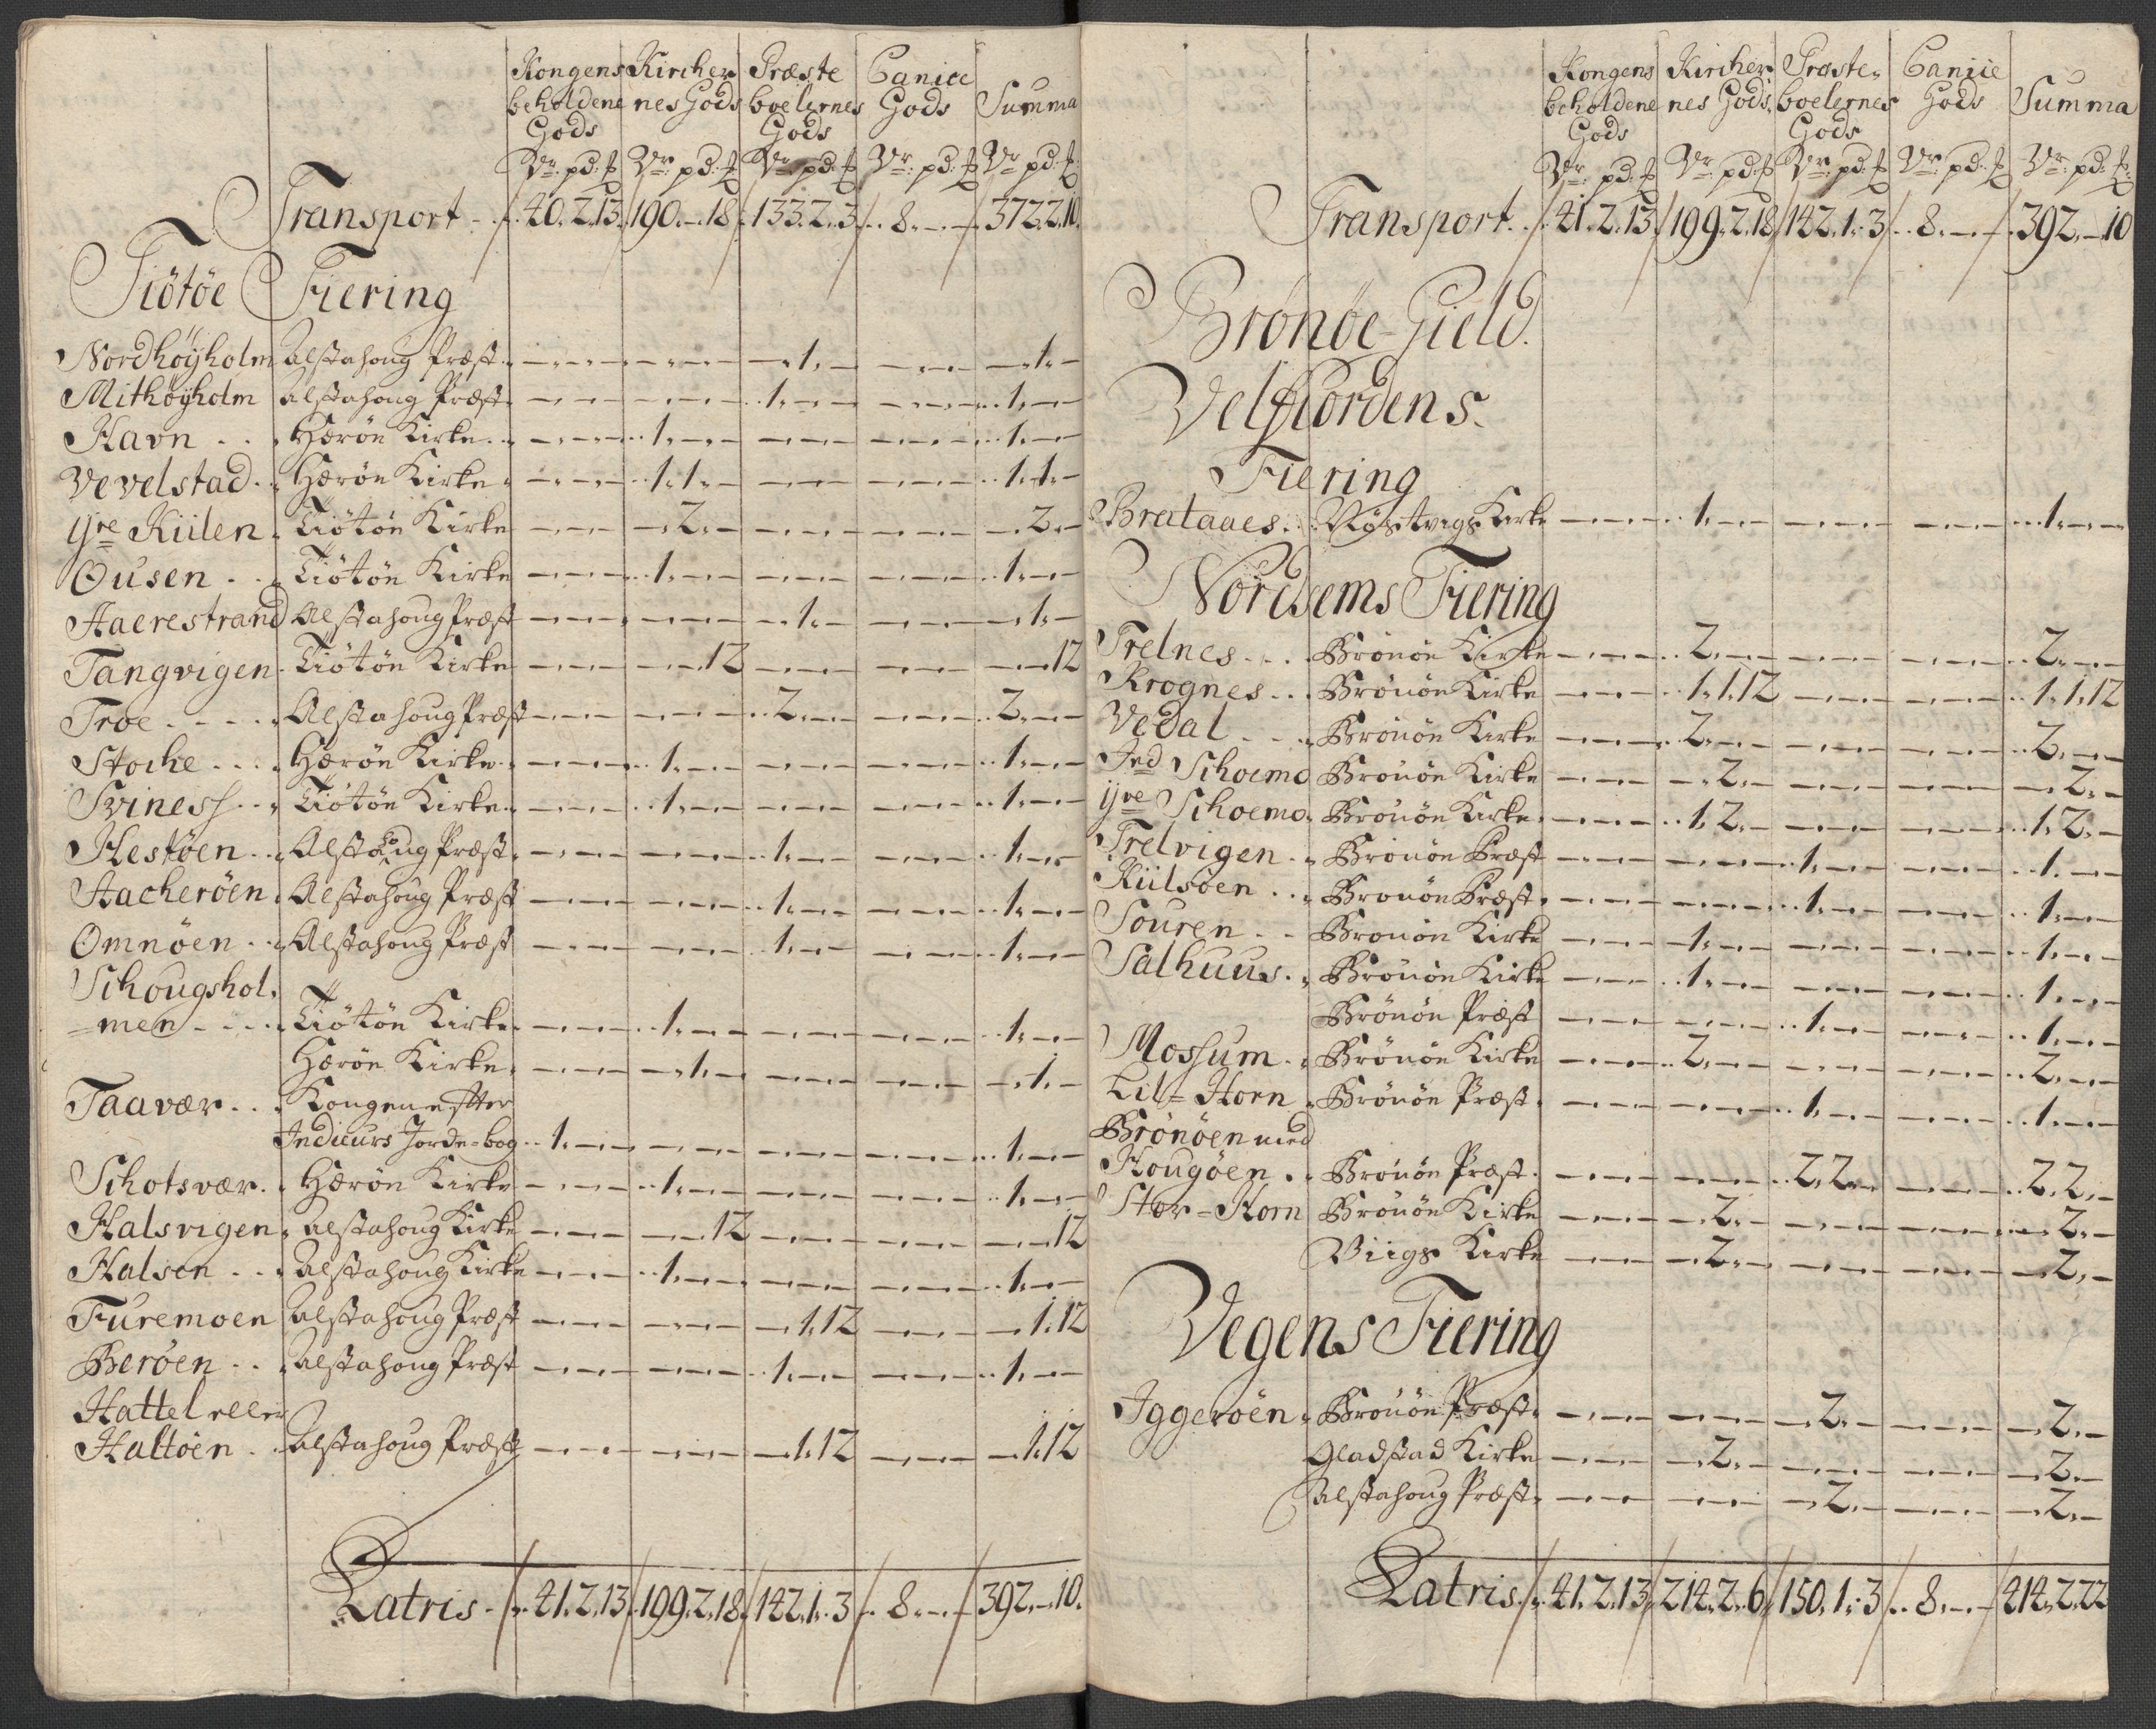 Kongens Kircher Præste Canice
beholdene nes Gods boelernes Gods Summa
Gods Gods
Vr: pd: Vr: pd: Vr: pd: Vr: pd: Vr pd:
Transport .. 40. 2. 13. 190. - 18 133. 2. 3 .. 8. - . - 373. 2. 10.
Tiøtøe Fiering
Nordhøÿholm Alstahoug Præst. - - - - - - - 1. - - - - - 1. -
Mithøÿholm Alstahoug Præst. - - - - - - 1. - - - - - 1. - -
Havn . . . Hærøn Kirke . . - - - 1. - - - - - - - - 1. - -
Vevelstad . . Hærøn Kirke . - - - 1. 1. - - - - - - - 1. 1. -
Yre Kiilen . Tiøtøn Kirke - - - - 2. - - - - - - - - 2. -
Ousen . . . Tiøtøn Kirke - - - 1. - - - - - - - - 1. - -
Aaerestrand Alstahoug Præst - - - - - - - 1. - - - - - 1. -
Tangvigen . Tiøtøn Kirke - - - - - 12 - - - - - - - - 12
Troe . . . . Alstahoug Præst - - - - - - 2. - - - - - 2. - -
Stoche . . . Hærøn Kirke . . - - - 1. - - - - - - - - 1. - -
Svinesß . . Tiøtøn Kirke . . - - - 1. - - - - - - - - 1. - -
Hestøen . . Alstahoug Præst . - - - - - - 1. - - - - - 1. - -
Aacherøen . Alstahoug Præst - - - - - - 1. - - - - - 1. - -
Omnøen . . Alstahoug Præst - - - - - - 1. - - - - - 1. - -
Schougshol.
=men . . . . Tiøtøn Kirke . - - - 1. - - - - - - - - 1. - -
Hærøn Kirke . - - - - 1. - - - - - - - - 1. -
Taavær . . . Kongen efter
Indicurs Jorde=bog . . 1. - - - - - - - - - - - 1. - -
Schotsvær . . Hærøn Kirke - - - 1. - - - - - - - - 1. - -
Halsvigen . Alstahoug Kirke - - - - - 12 - - - - - - - - 12
Halsen . . . Alstahoug Kirke - - - 1. - - - - - - - - 1. - -
Furemoen Alstahoug Præst - - - - - - - 1. 12 - - - - 1. 12
Berøen . . . Alstahoug Præst - - - - - - 1. - - - - - 1. - -
Hattel eller
Haltøen . . Alstahoug Præst - - - - - - - 1. 12 - - - - 1. 12
Latris . . 41. 2. 13. 199. 2. 18. 142. 1. 3 . . 8. - . - 392. - 10.
Kongens Kircher Præste= Canice
beholdene nes Gods. boelernes Gods Summa
Gods Gods
Vr: pd: Vr: pd: Vr: pd: Vr: pd: Vr: pd:
Transport . . 41. 2. 13. 199. 2. 18 142. 1. 3 . . 8. - . - 392. - 10
Brønøe-Gield.
Velfiordens.
Fiering
Brataaes . . Nøstvigs Kirke - - - 1. - - - - - - - - 1. - -
Nordsems Fiering
Trelnes . . . Brønøn Kirke - - - 2. - - - - - - - - 2. - -
Krognes . . . Brønøn Kirke - - - 1. 1. 12 - - - - - - 1. 1. 12
Vedal . . . Brønøn Kirke - - - 2. - - - - - - - - 2. - -
Ind Schoemo Brønøn Kirke - - - - 2. - - - - - - - - 2. -
Yve Schoemo . Brønøn Kirke . - - - 1. 2. - - - - - - - 1. 2. -
Trelvigen . . Brønøn Præst - - - - - - 1. - - - - - 1. - -
Kiilsøen . . . Brønøn Præst . - - - - - - 1. - - - - - 1. - -
Souren . . Brønøn Kirke - - - 1. - - - - - - - - 1. - -
Salhuus . . Brønøn Kirke - - - 1. - - - - - - - - 1. - -
Brønøn Præst - - - - - - 1. - - - - - 1. - -
Mossum . . Brønøn Kirke - - - 2. - - - - - - - - 2. - -
Lil=Horn . Brønøn Præst . - - - - - - 1. - - - - - 1. - -
Brønøen med
Hougøen . . Brønøn Præst . - - - - - - 2. 2. - - - - 2. 2. -
Stor=Horn Brønøn Kirke - - - - 2. - - - - - - - - 2. -
Viigs Kirke - - - - 2. - - - - - - - - 2. -
Vegens Fiering
Iggerøen . Brønøn Præst . - - - - - - - 2. - - - - - 2. -
Gladstad Kirke - - - - 2. - - - - - - - - 2. -
Alstahoug Præst . - - - - - - - 2. - - - - - 2. -
Latris . . 41. 2. 13. 214. 2. 6 150. 1. 3 . . 8. - . - 414. 2. 22